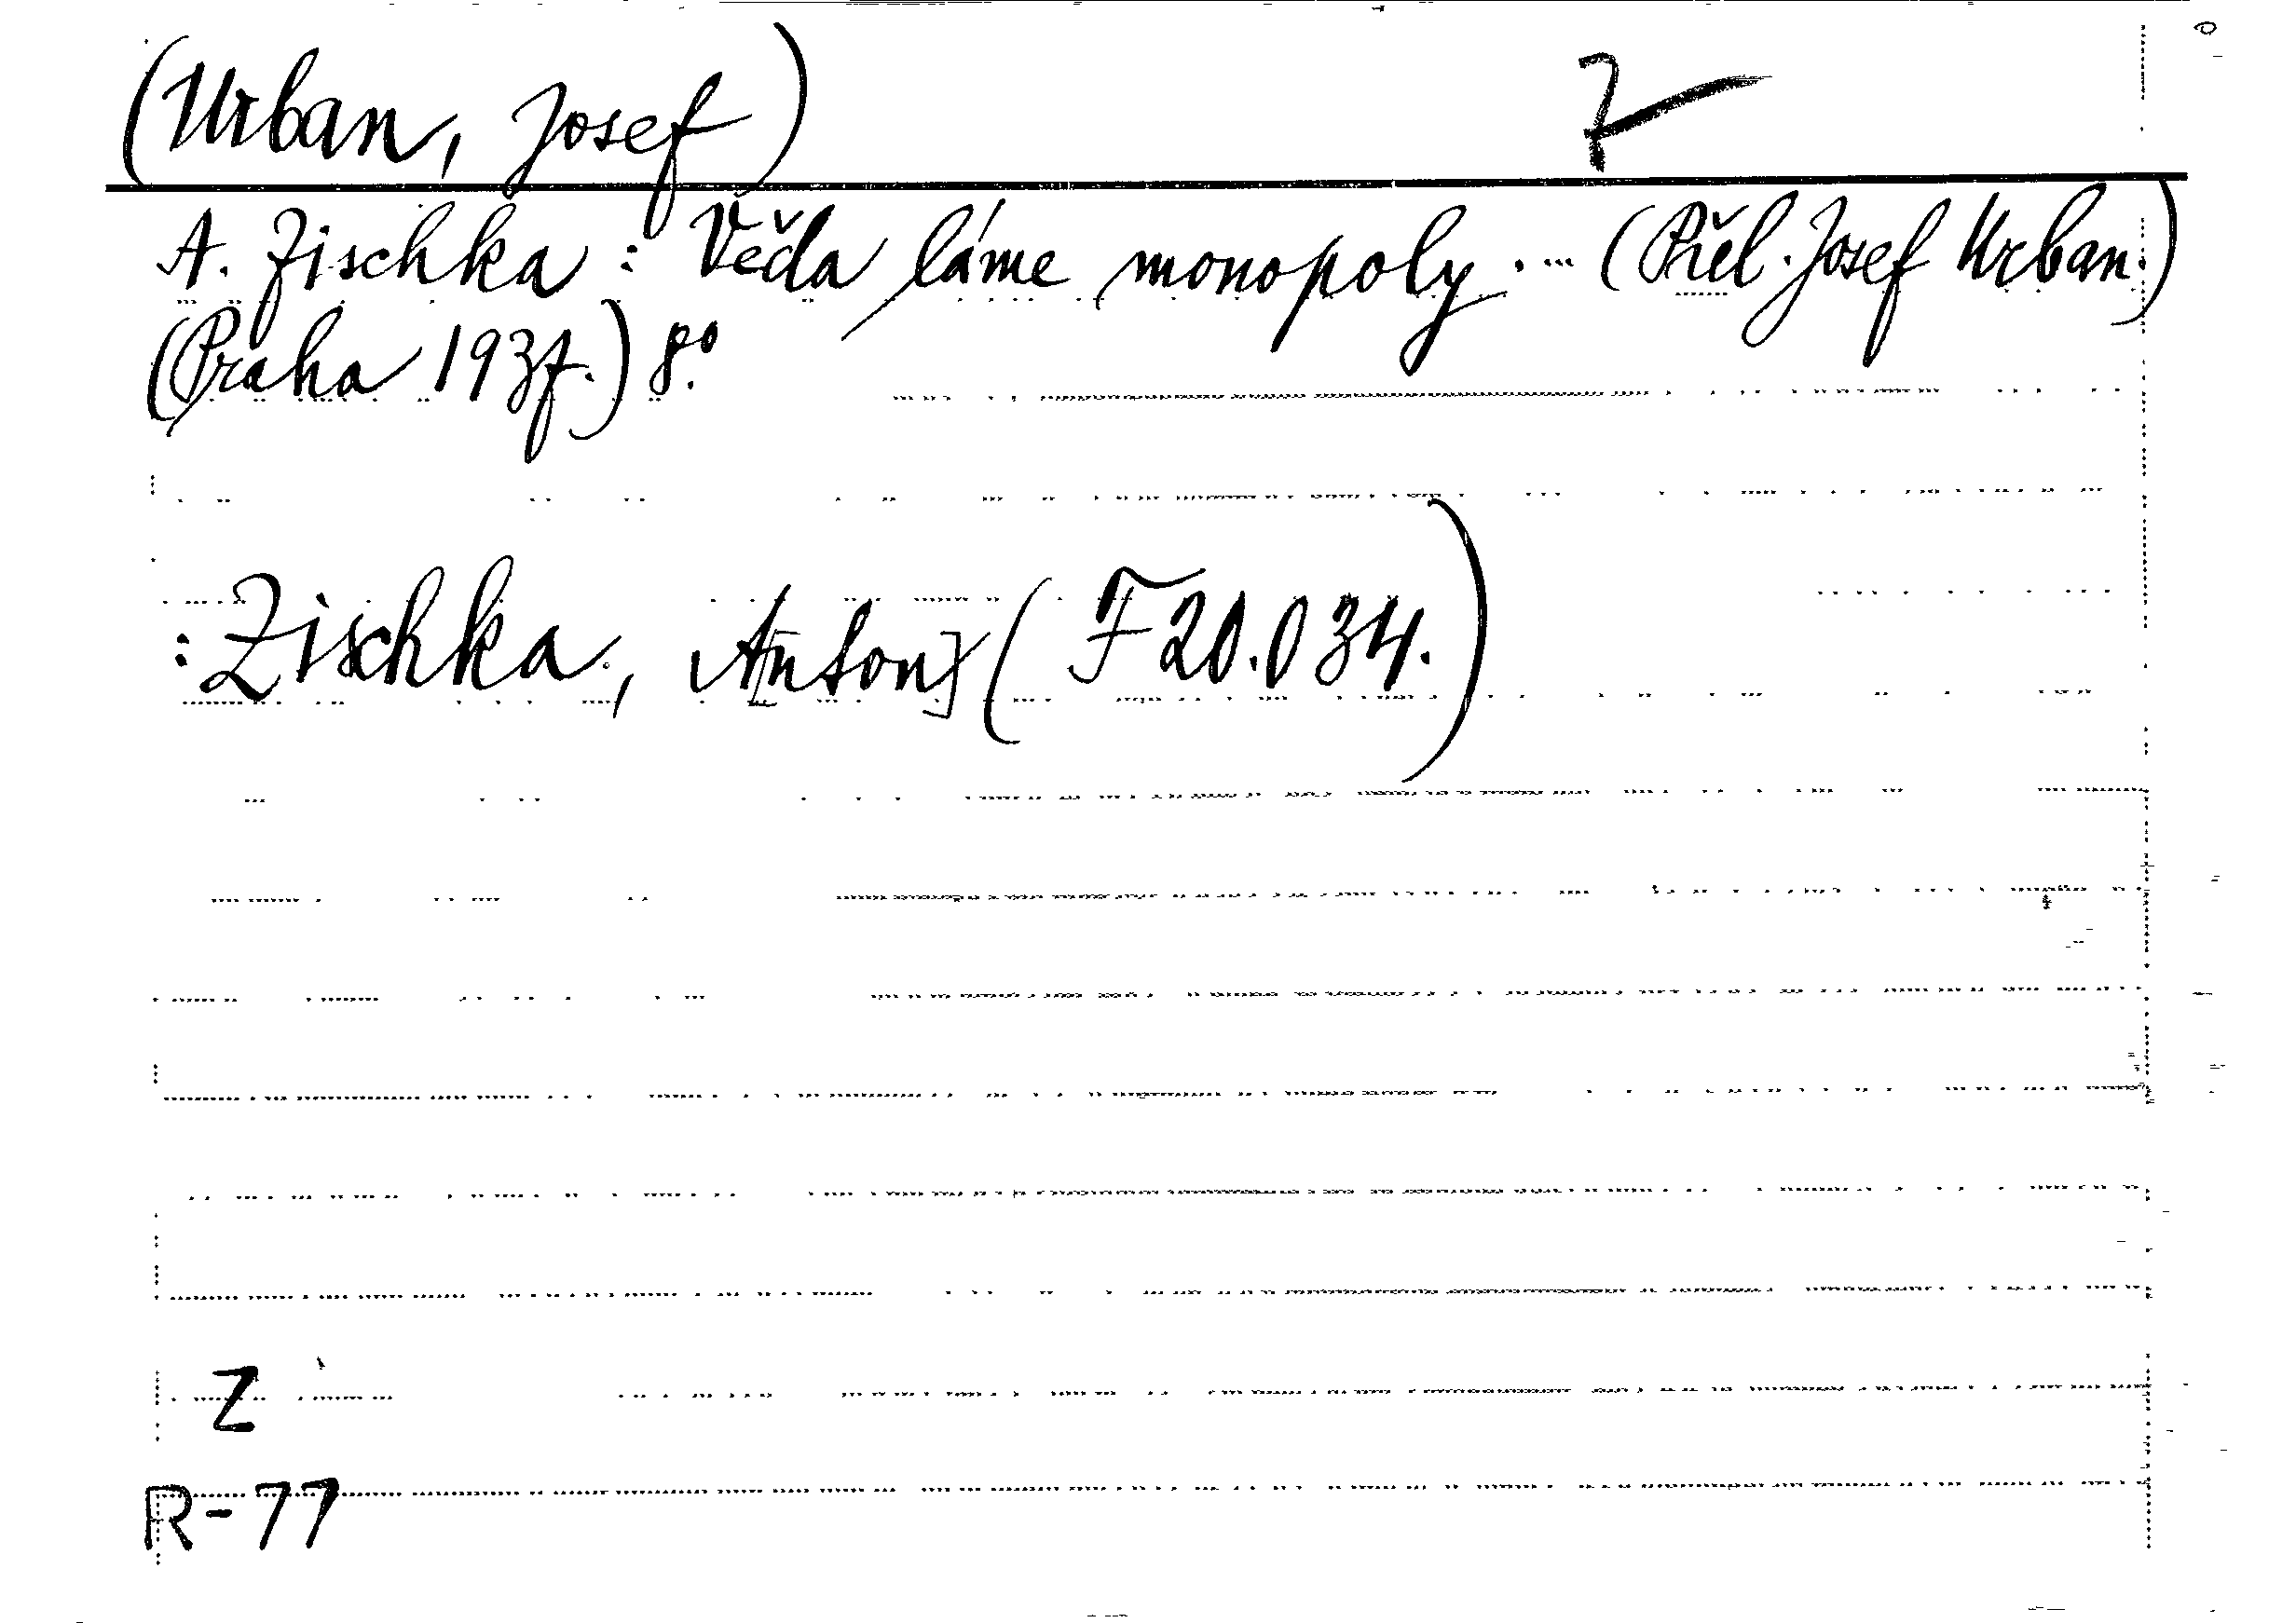 (Urban, Josef) 7
A. Zischka: Věda láme monopoly. ... (Přel. Josef Urban.)
(Praha 1937.) 8°.
: Zischka, A[nton] (F 20.034.)
Z
R-77